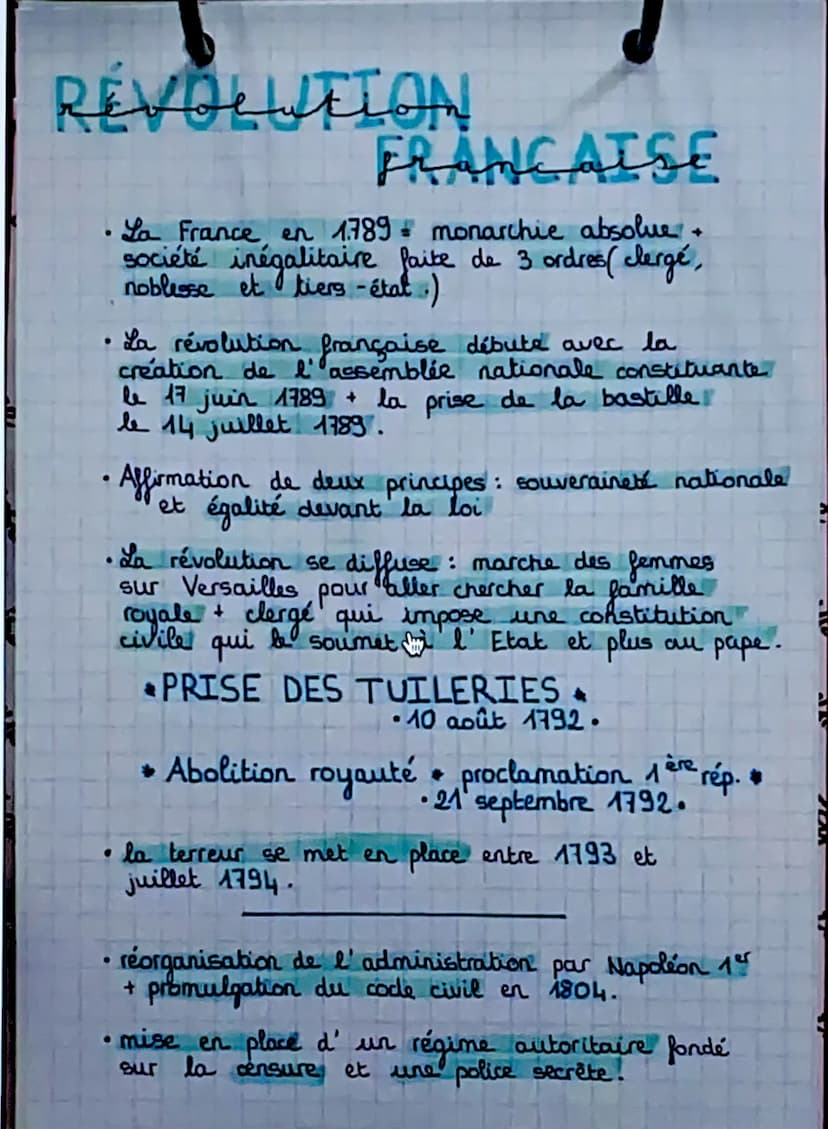 RÉVOLUTION
révolution
FRANCAISE
francaise
• La France en 1789 = monarchie absolue +
société inégalitaire faite de 3 ordres( clergé,
noblesse et tiers-état.)
• La révolution française débute avec la
création de l'assemblée nationale constituante
le 17 juin 1789 + la prise de la bastille
le 14 juillet 1789.
• Affirmation de deux principes : souveraineté nationale
et égalité devant la loi
• La révolution se diffuse : marche des femmes
sur Versailles pour aller chercher la famille
royale + clergé qui impose une constitution
civile qui le soumet à l'Etat et plus au pape.
• PRISE DES TUILERIES •
• 10 août 1792 •
• Abolition royauté • proclamation 1ère rép. •
• 21 septembre 1792 •
• la terreur se met en place entre 1793 et
juillet 1794.
• réorganisation de l'administration par Napoléon 1er
+ promulgation du code civil en 1804.
• mise en place d'un régime autoritaire fondé
sur la censure et une police secrète.